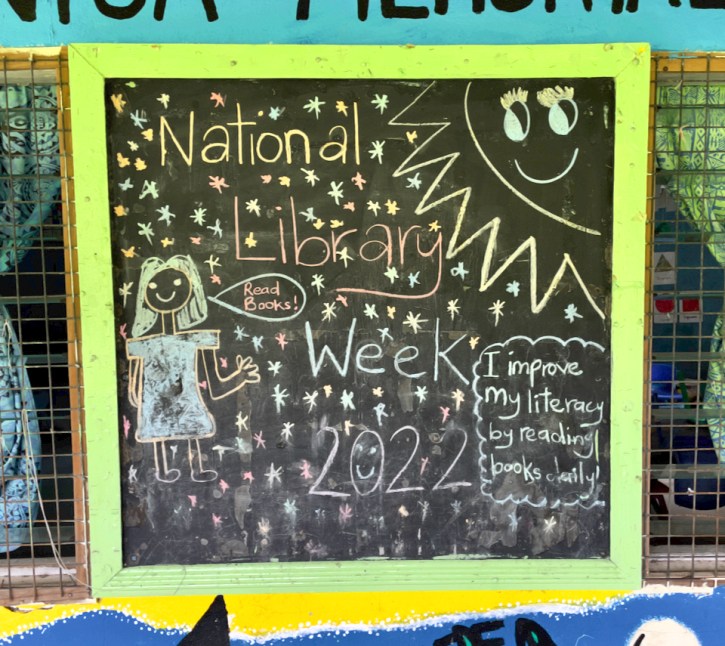 National
Library
Read
Books!
Week
2022
I improve
my literacy
by reading
books daily!